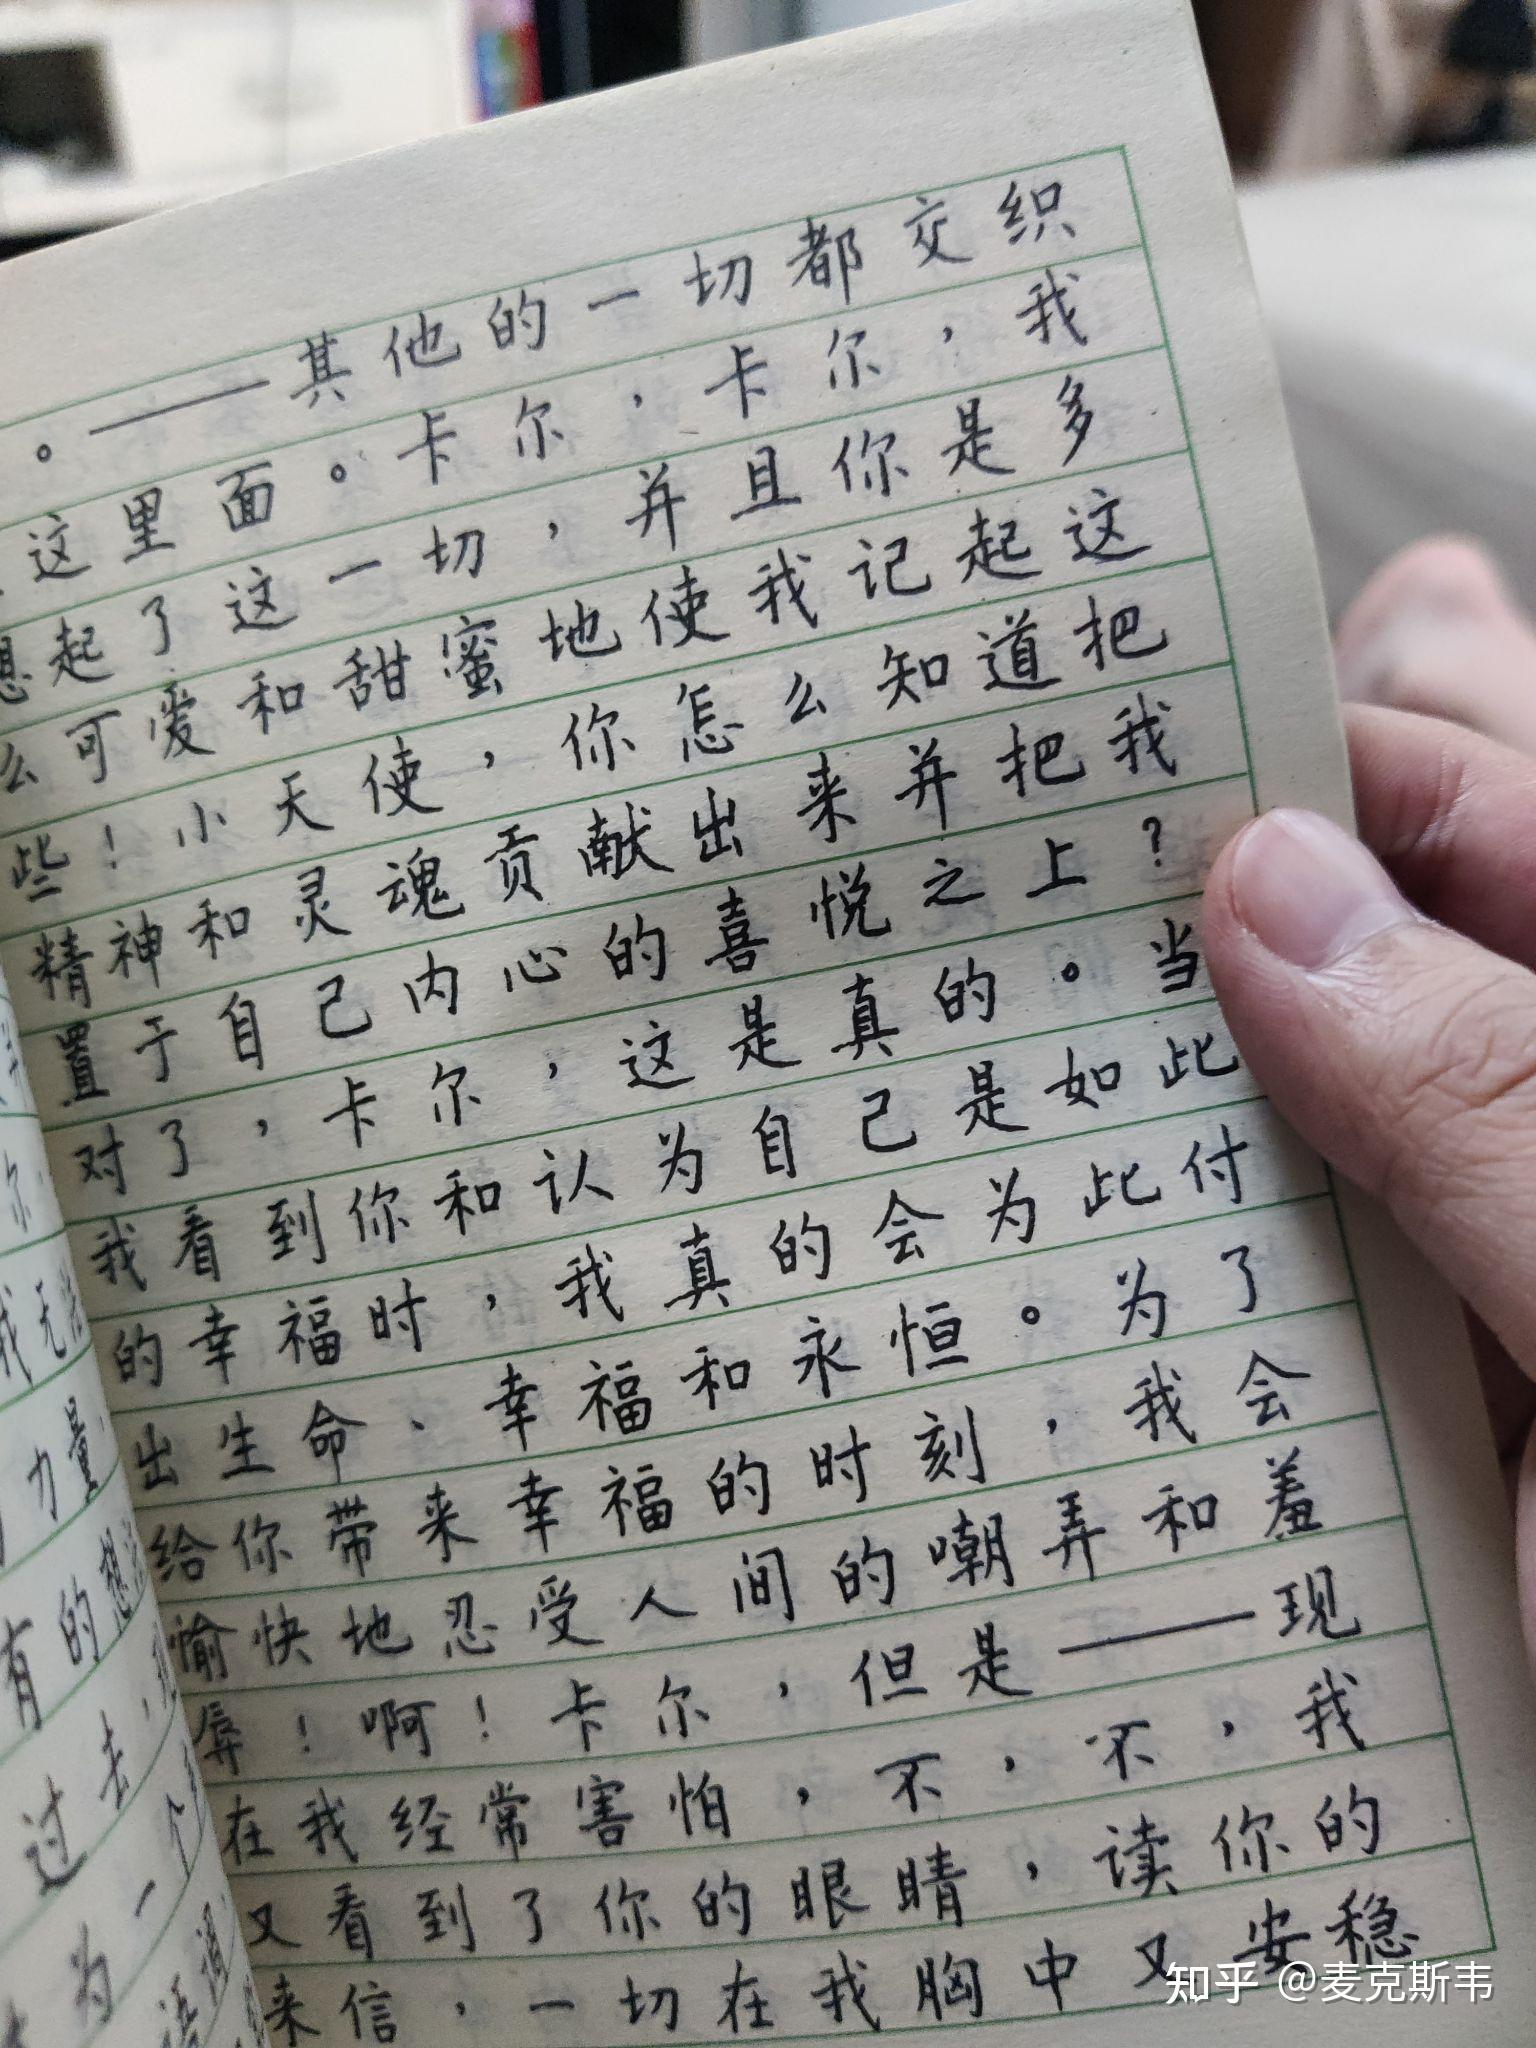 。——其他的一切都交织
这里面。卡尔，卡尔，我
想起了这一切，并且你是多
么可爱和甜蜜地使我记起这
些！小天使，你怎么知道把
精神和灵魂贡献出来并把我
置于自己内心的喜悦之上？
对了，卡尔，这是真的。当
我看到你和认为自己是如此
的幸福时，我真的会为此付
出生命、幸福和永恒。为了
给你带来幸福的时刻，我会
愉快地忍受人间的嘲弄和羞
辱！啊！卡尔，但是——现
在我经常害怕，不，不，我
又看到了你的眼睛，读你的
来信，一切在我胸中又安稳
尔
我无
力量
有的想
过去，
一个
为
语调
知乎 @麦克斯韦